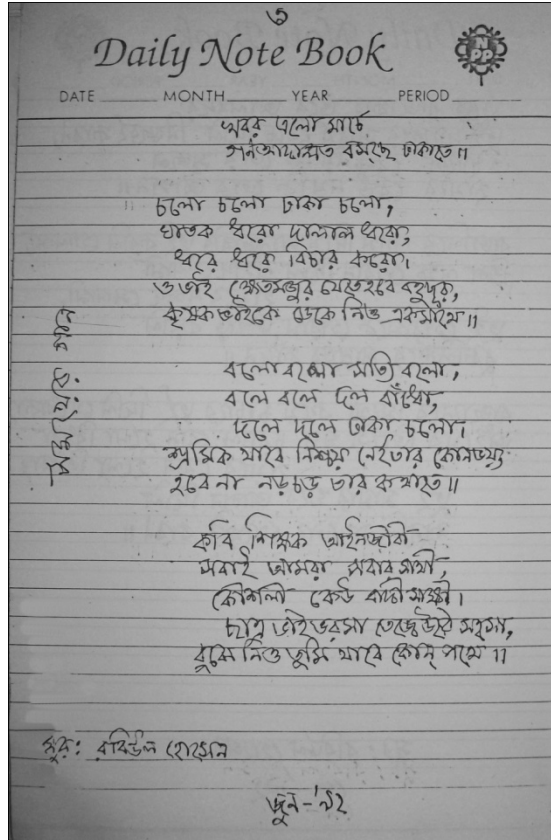 ৩
Daily Note Book
NPP
DATE MONTH YEAR PERIOD
খবর এলো মার্চে
গণআদালত বসছে ঢাকাতে॥
চলো চলো ঢাকা চলো,
ঘাতক ধরো দালাল ধরো,
ধরে ধরে বিচার করো।
ও ভাই ক্ষেতমজুর যেতে হবে বহুদূর,
কৃষক ভাইকে ডেকে নিও একসাথে॥
বলো বলো সত্যি বলো,
বলে বলে দল বাঁধো,
দলে দলে ঢাকা চলো,
শ্রমিক যাবে নিশ্চয় নেই তার কোন ভয়
হবে না নড়চড় তার কথাতে॥
কবি শিক্ষক আইনজীবী
সবাই আমরা সবার সাথী,
কৌশলী কেউ বাদী সাক্ষী।
ছাত্র ভাই ভরসা তেজে উঠবে সহসা,
বুঝে নিও তুমি যাবে কোন্ পথে॥
সুর: রবিউল হোসেন
জুন-'৯২